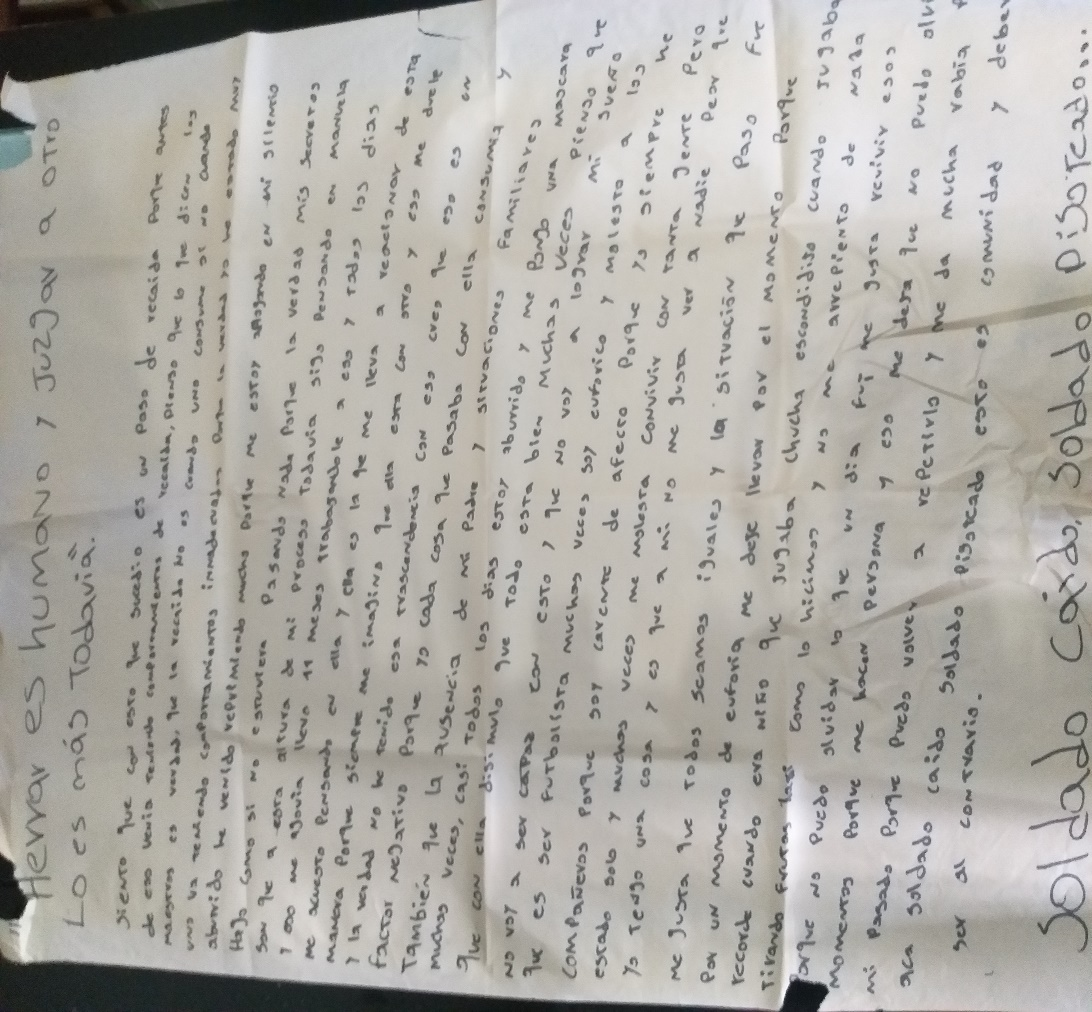 Herrar es humano y Juzgar a otro
Lo es más Todavía".
siento que con esto que sucedio es un Paso de recaida Porque antes
de eso venia teniendo comportamientos de recaida, Pienso que lo que dicen los
maestros es verdad, que la recaida no es cuando uno consume si no cuando
uno va teniendo comportamientos inadecuados Porque la verdad yo he estado muy
aburrido he venido reprimiendo mucho Porque me estoy ahogando en mi silencio
Hago como si no estuviera Pasando nada Porque la verdad mis secretos
son que a esta altura de mi Proceso Todavia sigo Pensando en manuela
y eso me agovia llevo 11 meses trabajandole a eso y todos los dias
me acuesto Pensando en ella y ella es la que me lleva a reacionar de esta
manera Porque siempre me imagino que ella esta con otro y eso me duele
y la verdad no he tenido esa trascendencia con eso creo que eso es en
factor negativo Porque yo cada cosa que Pasaba con ella consumia y
También que la ausencia de mi Padre y situaciones Familiares
muchas veces, casi Todos los dias estoy aburrido y me Pongo una mascara
que con ella disimulo que Todo esta bien muchas veces Pienso que
no voy a ser capaz con esto y que no voy a lograr mi sueño
que es ser Futbolista muchas veces soy euforico y molesto a los
compañeros Porque soy carente de afecto Porque yo siempre he
estado solo y muchas veces me molesta convivir con tanta gente Pero
yo tengo una cosa y es que a mi no me gusta ver a nadie Peor que
me gusta que Todos seamos iguales y la situación que Paso fue
Por un momento de euforia me deje llevar Por el momento Porque
recorde cuando era niño que jugaba chucha escondidiso cuando jugaba
Tirando frutas como lo hicimos y no me arrepiento de nada
Porque no Puedo olvidar lo que un dia fui me gusta revivir esos
momentos Porque me hacen Persona y eso me deja que no Puedo olvi
mi Pasado Porque Puedo volver a repetirlo y me da mucha rabia
aca soldado caido soldado Pisoteado esto es comunidad y deber
ser al contrario.
Soldado Caido, Soldado Pisoteado...